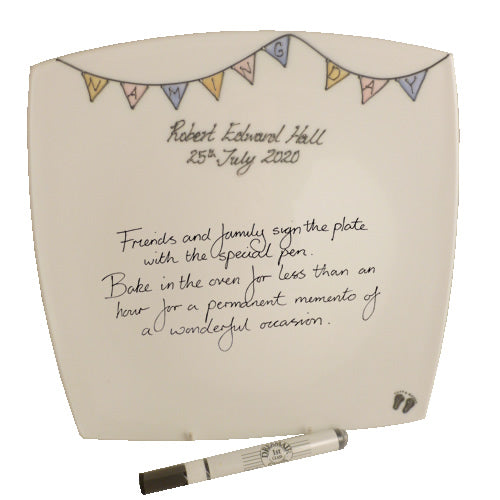 NAMING DAY
Robert Edward Hall
25th July 2020
Friends and family sign the plate
with the special pen.
Bake in the oven for less than an
hour for a permanent memento of
a wonderful occasion.